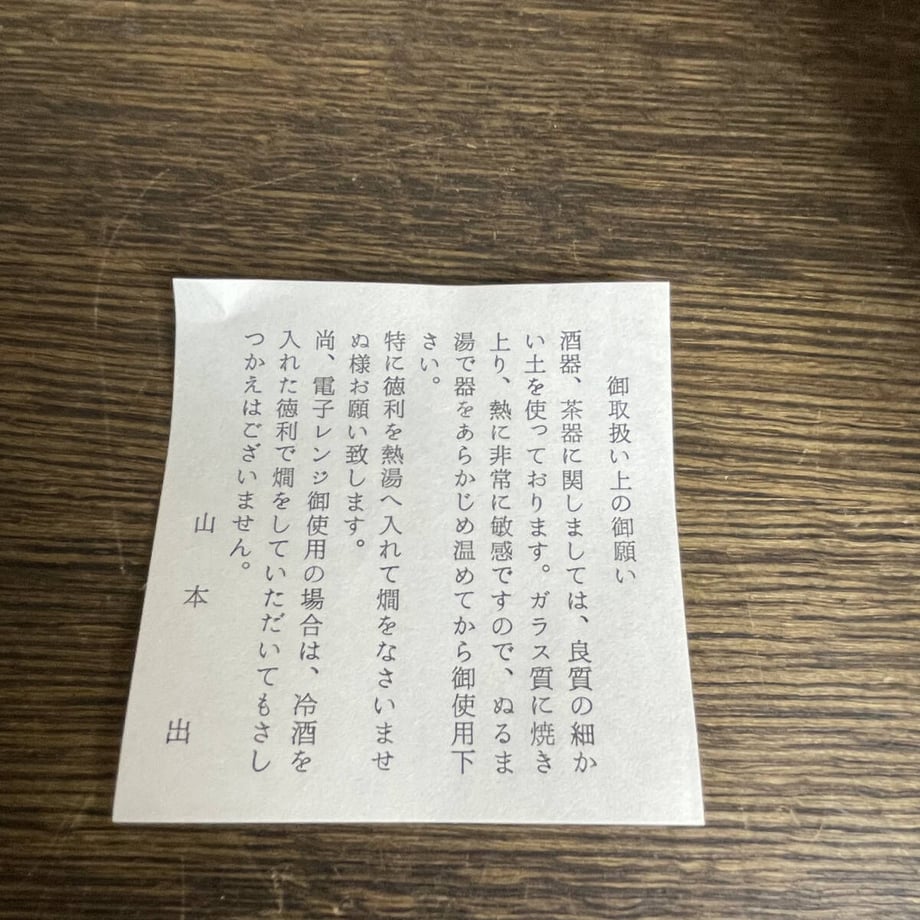 御取扱い上の御願い
酒器、茶器に関しましては、良質の細か
い土を使っております。ガラス質に焼き
上り、熱に非常に敏感ですので、ぬるま
湯で器をあらかじめ温めてから御使用下
さい。
特に徳利を熱湯へ入れて燗をなさいませ
ぬ様お願い致します。
尚、電子レンジ御使用の場合は、冷酒を
入れた徳利で燗をしていただいてもさし
つかえはございません。
山本出